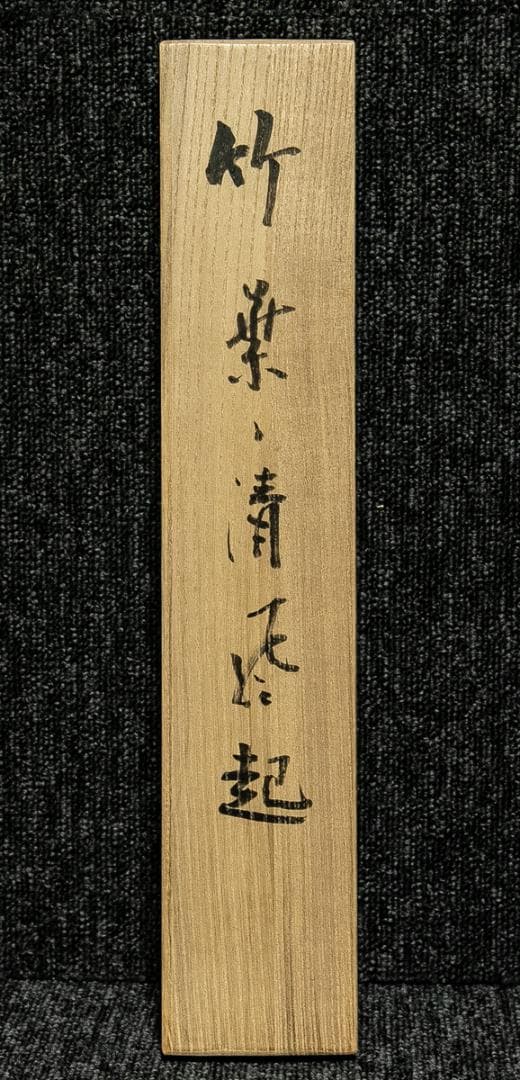 竹葉々清風起